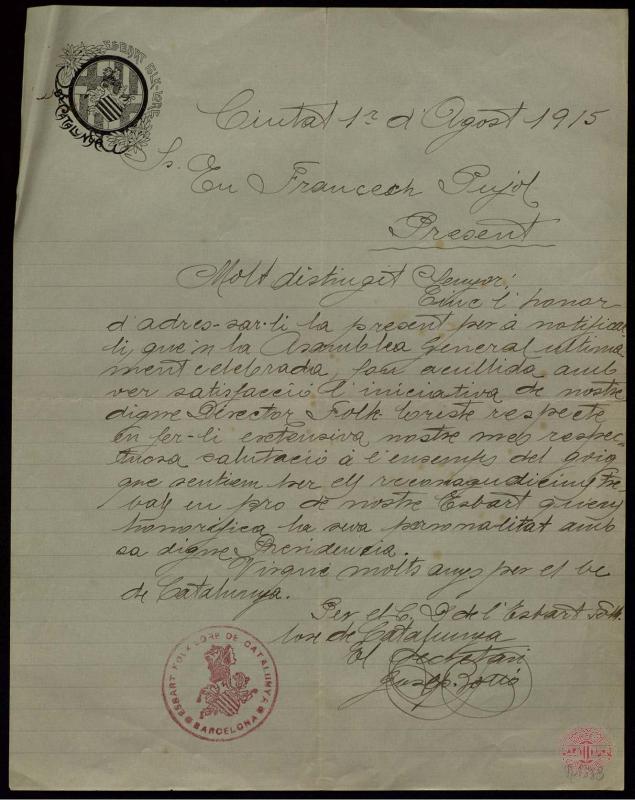 ESBART FOLK-LORE
DE CATALUNYA
Ciutat 1r d'Agost 1915
Sr. En Francesch Pujol
Present
Molt distinget Senyor:
Tinc l'honor
d'adres-sar-li la present per à notificar-
li, que'n la Asamblea General ultima-
ment celebrada, fou acullida amb
ver satisfacció l'iniciativa de nostre
digne Director Folk-loriste respecte
en fer-li extensiva nostre mes respec-
tuosa salutació à l'ensemps del goig
que sentiem per ell
en pro de nostre Esbart
honorifica la seva personalitat amb
sa digne Presidencia.
Visque molts anys per el be
de Catalunya.
Per el C. D. de l'Esbart Folk-
lore de Catalunya
El Secretari,
ESBART FOLK-LORE DE CATALUNYA
BARCELONA